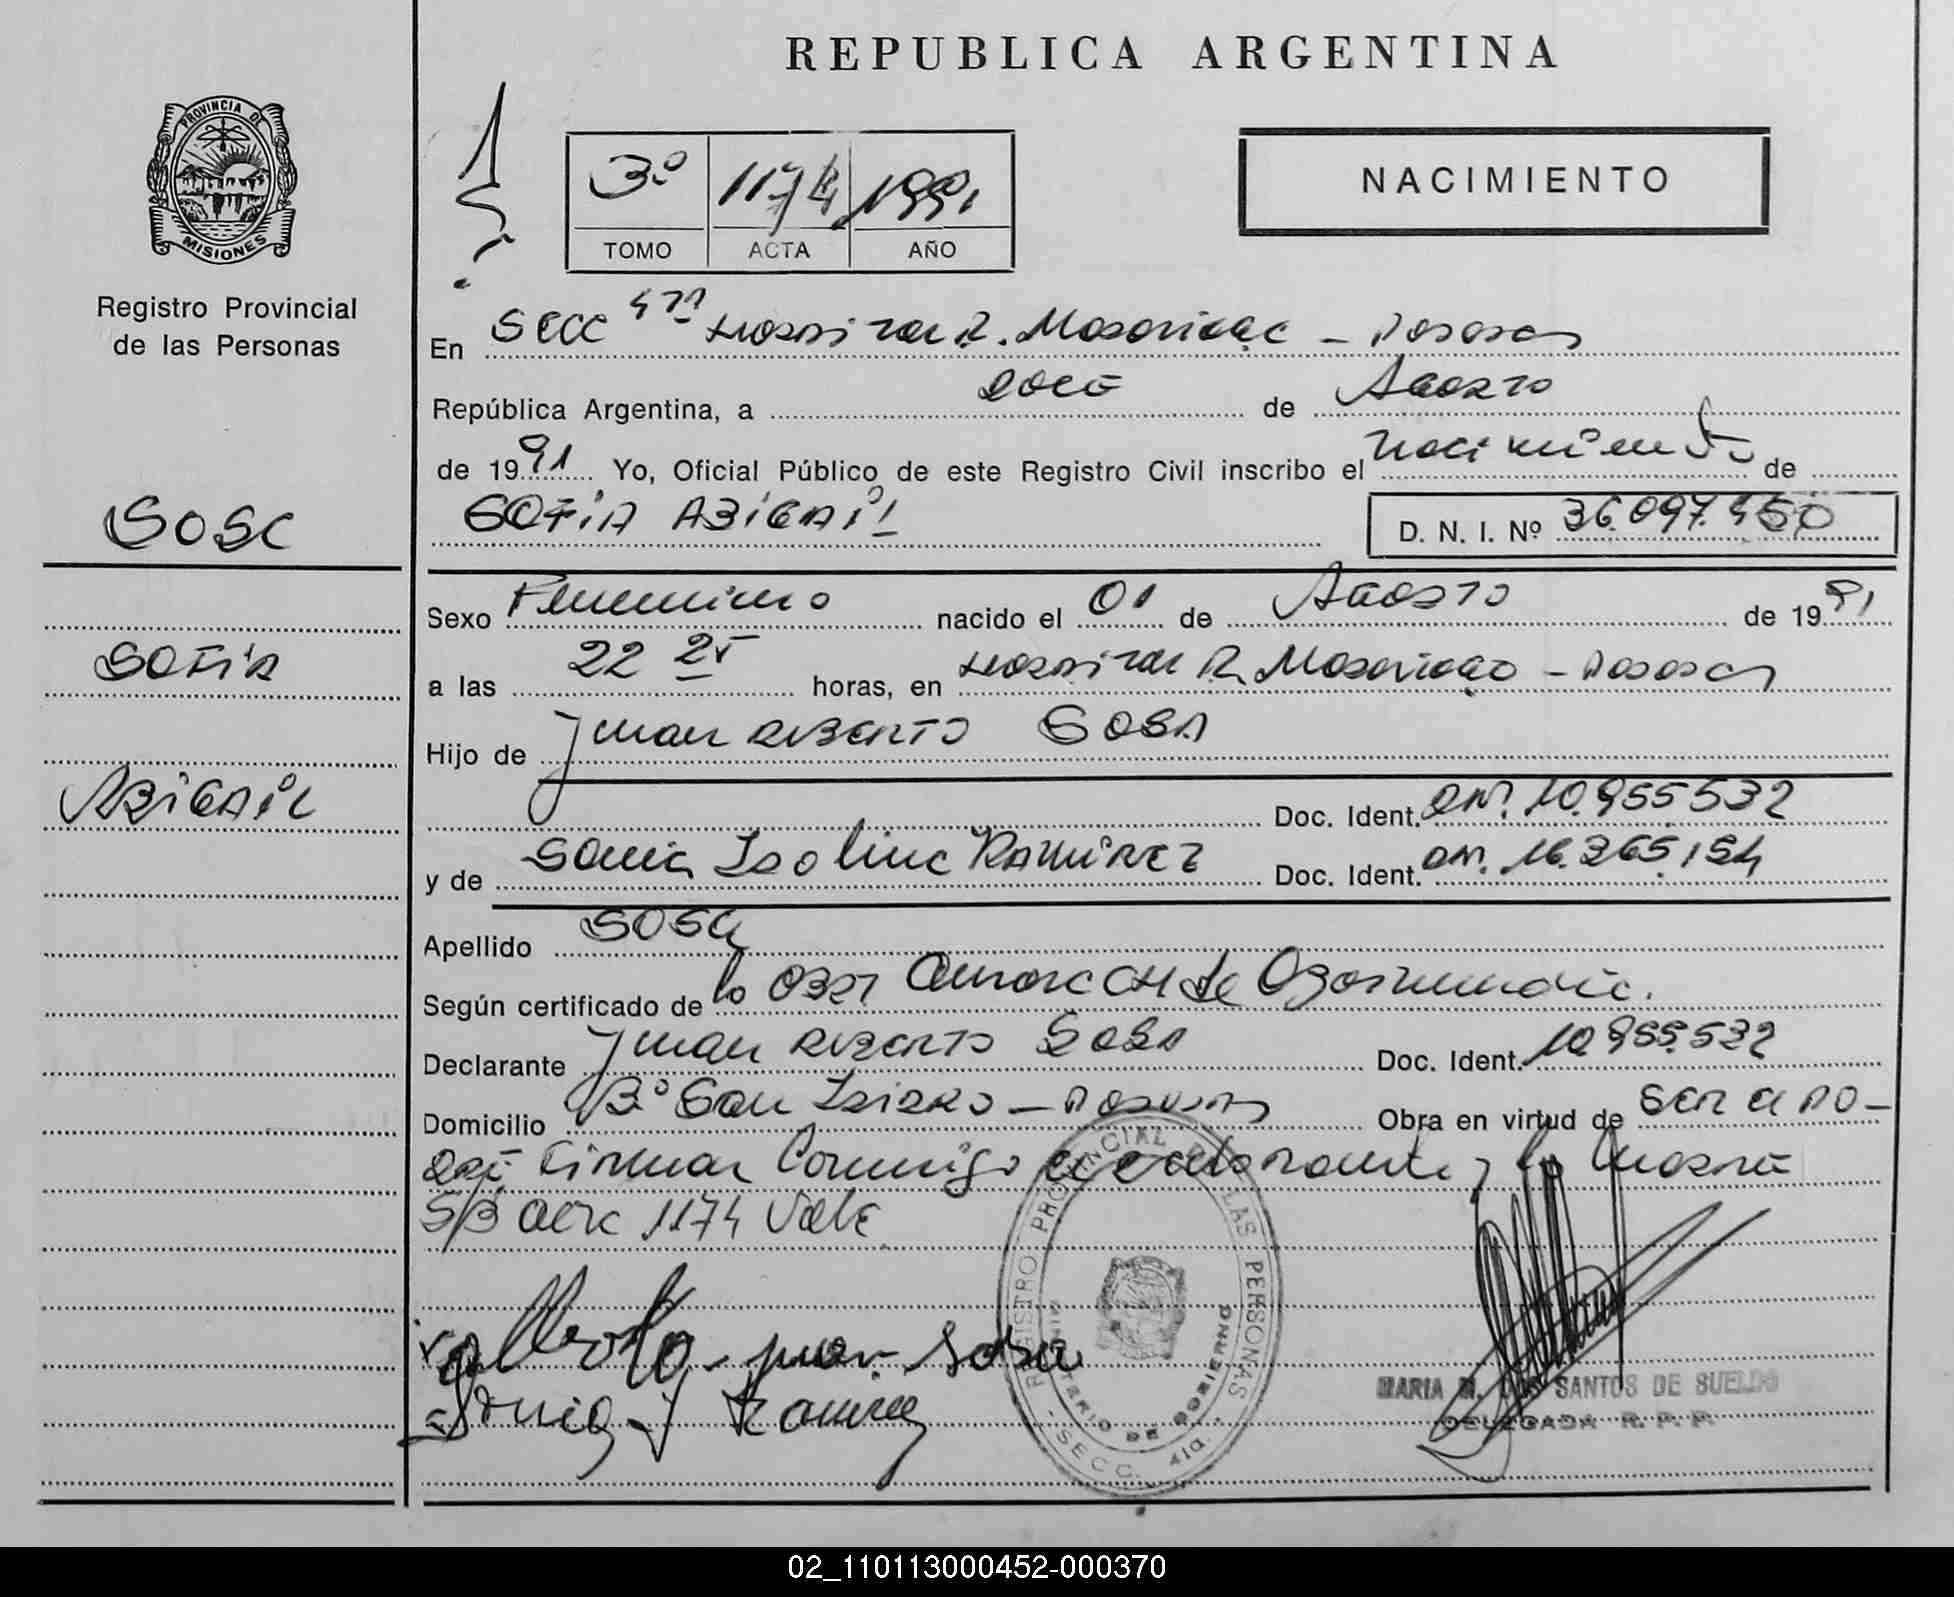 REPUBLICA ARGENTINA
PROVINCIA DE
MISIONES
Registro Provincial
de las Personas
3º 1174 1991
TOMO ACTA AÑO
NACIMIENTO
En Secc 4ta Hospital R. Madariaga - Posadas
República Argentina, a doce de Agosto
de 1991 Yo, Oficial Público de este Registro Civil inscribo el Nacimiento de
SOFIA ABIGAIL D. N. I. Nº 36.097.450
Sosa
Sexo Femenino nacido el 01 de Agosto de 1991
SOFIA
a las 22 25 horas, en Hospital R. Madariaga - Posadas
Hijo de Juan Alberto SOSA
ABIGAIL
Doc. Ident. DNI. 10.955.532
y de Sonia Isolina RAMIREZ Doc. Ident. DNI. 16.365.154
Apellido SOSA
Según certificado de la Obst
Declarante Juan Alberto SOSA Doc. Ident. 10.955.532
Domicilio Bº San Isidro - Posadas Obra en virtud de ser el pa-
dre Firman Conmigo el declarante y la Madre
S/B Acta 1174 Vale
REGISTRO PROVINCIAL DE LAS PERSONAS
MINISTERIO DE GOBIERNO
- SECC. 4ta. -
juan sosa
Sonia I Ramirez
MARIA M. DOS SANTOS DE SUELDO
DELEGADA R. P. P.
02_110113000452-000370